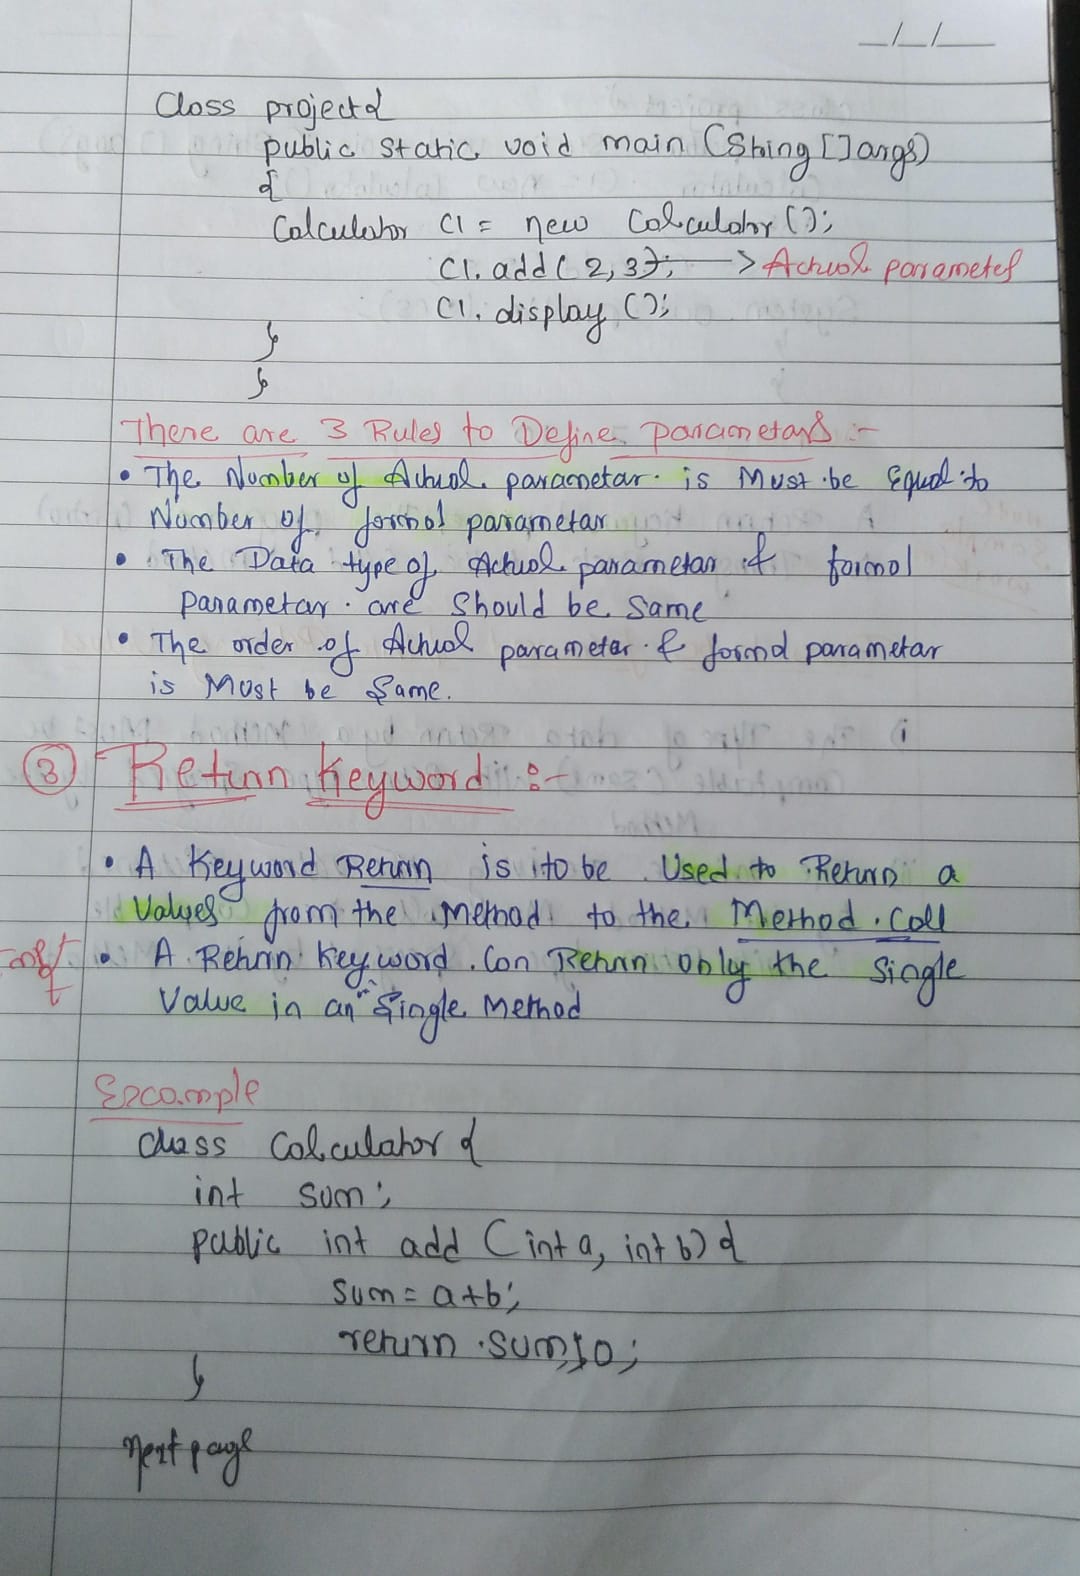 _/_/_
Class project{
public static void main (String []args)
{
Calculator C1 = new Calculator ();
C1. add( 2, 3); —> Actual parameter
C1. display ();
}
}
There are 3 Rules to Define parametars :-
• The Number of Actual parametar is Must be Equal to
Number of formal parametar
• The Data type of Actual parametar & formal
Parametar are Should be Same
• The order of Actual parameter & formal parametar
is Must be Same.
③ Return Keyword :-
• A Keyword Return is to be Used to Return a
Values from the Method to the Method Call
• A Return Keyword Can Return only the Single
Value in an Single Method
Example
Class Calculator {
int sum;
public int add (int a, int b) {
sum = a+b;
return sum
}
Next page